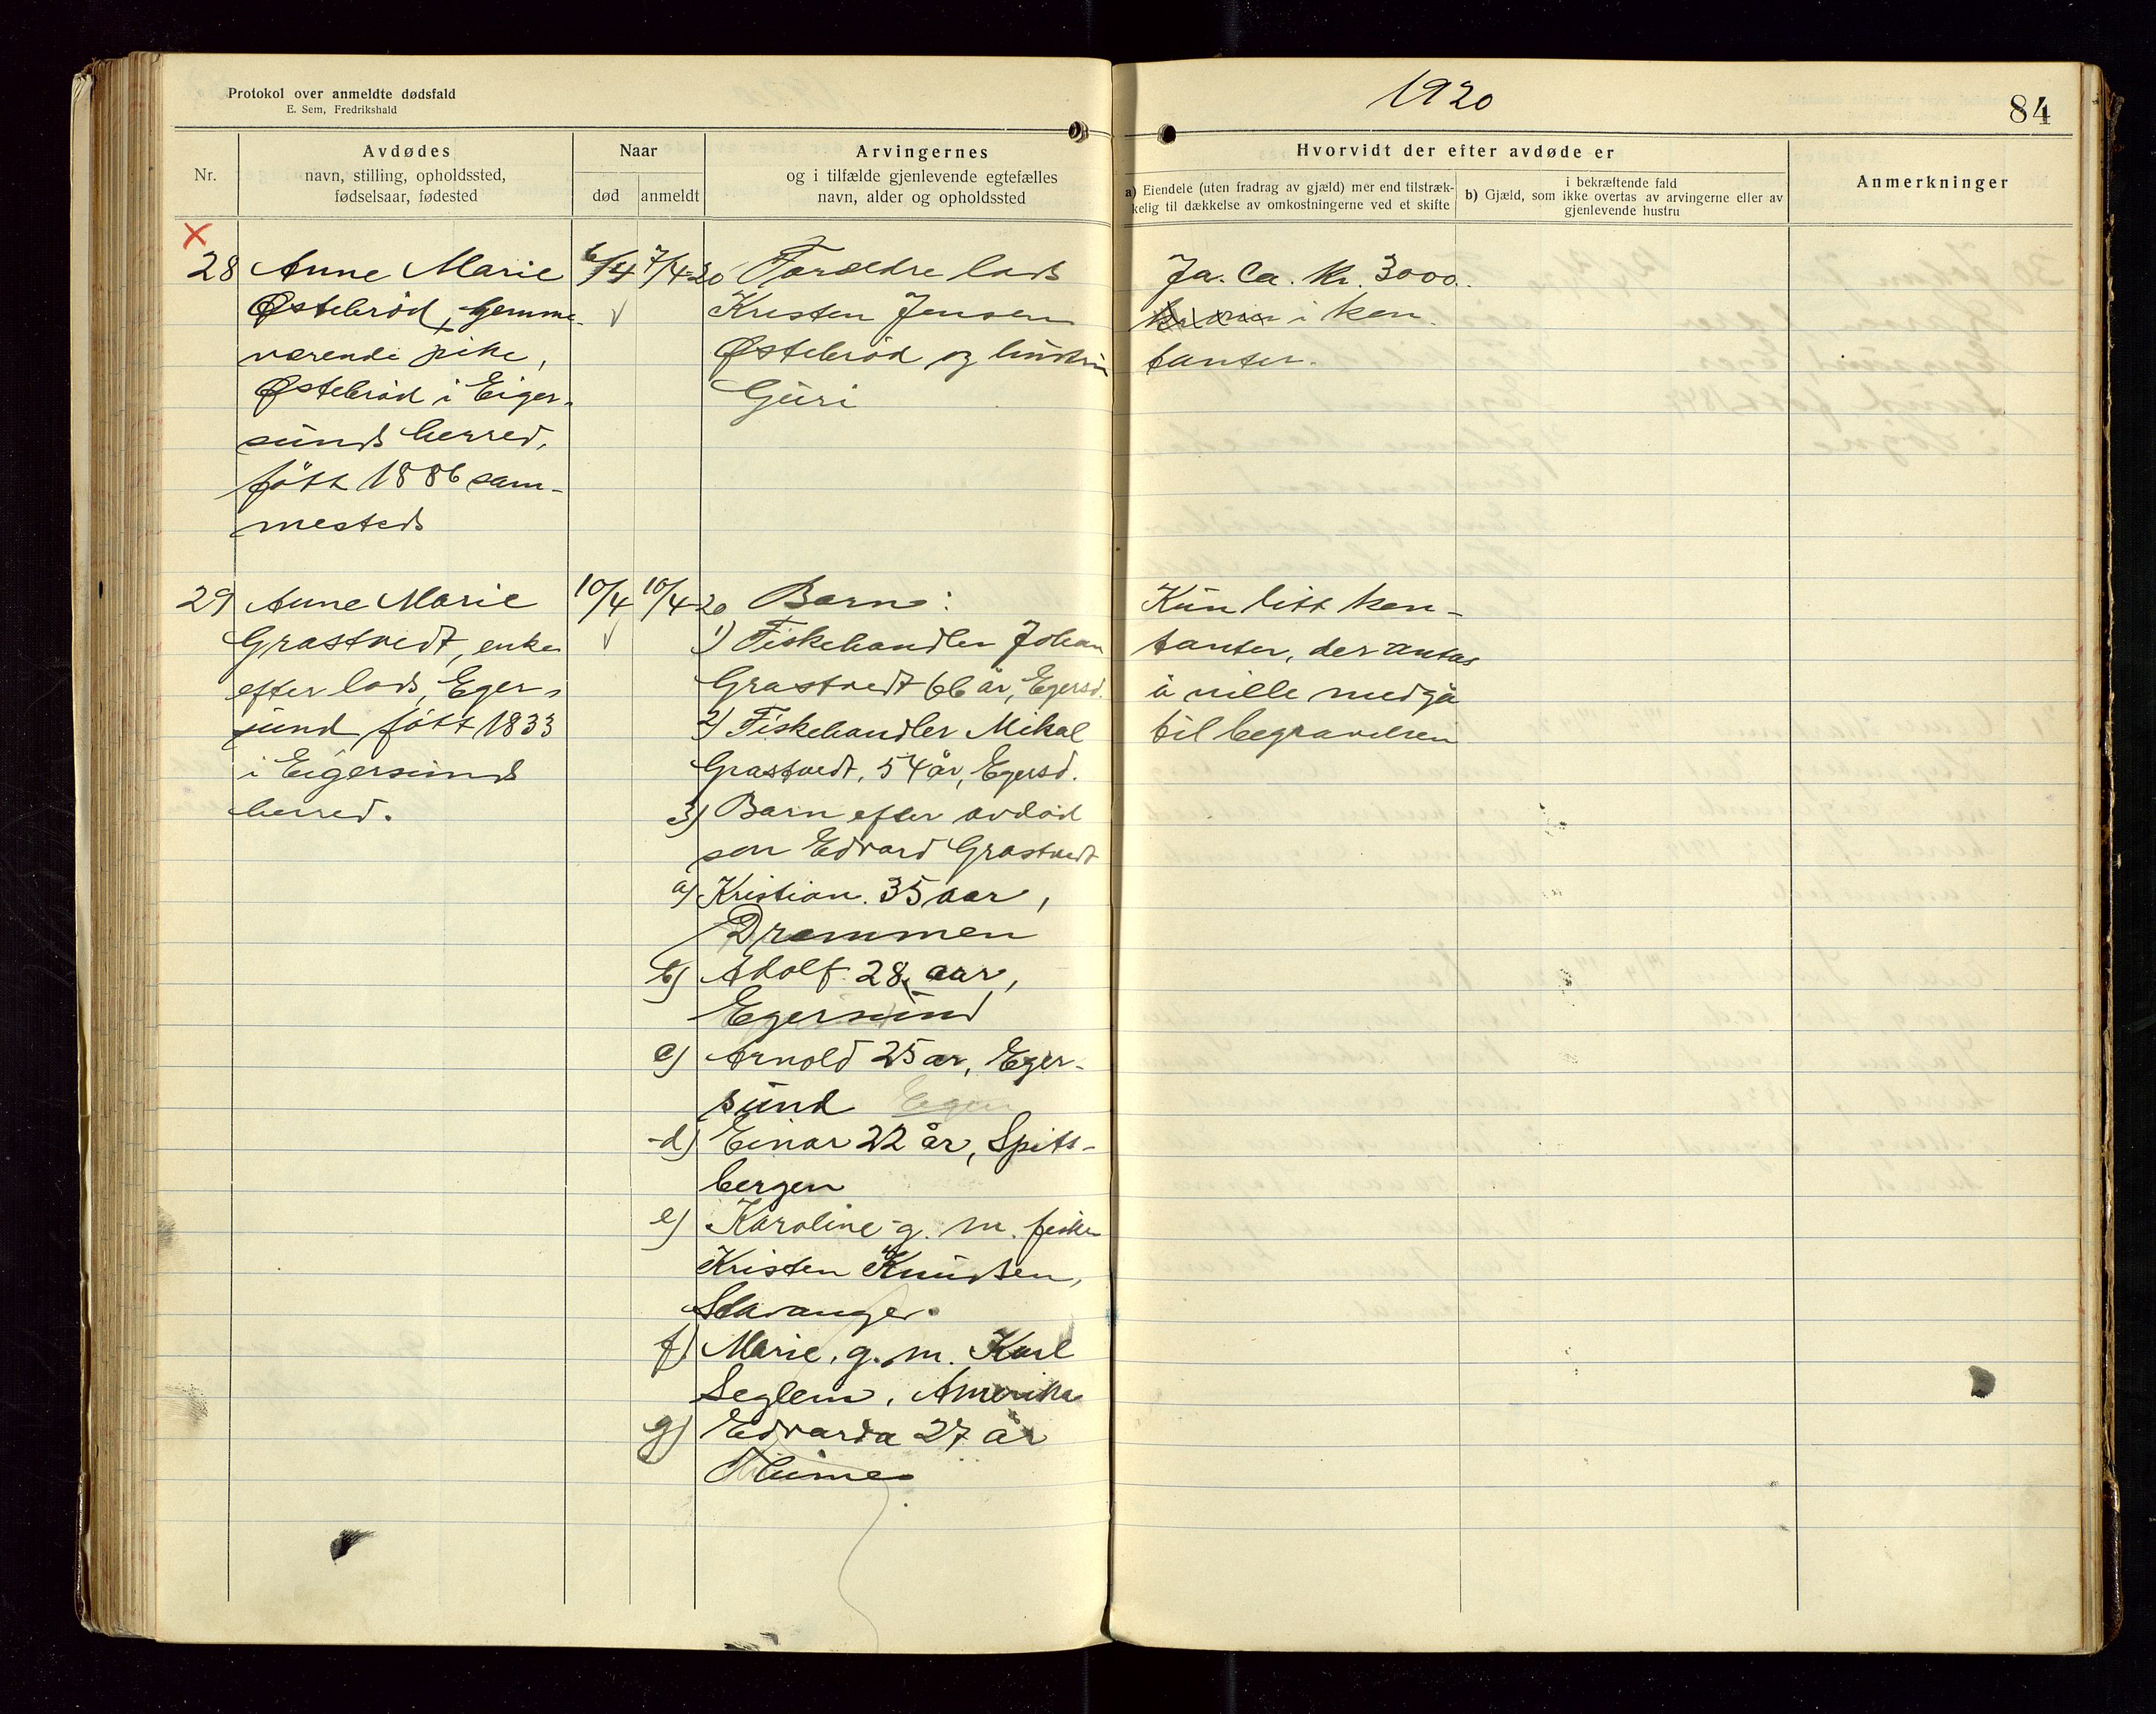 Protokol over anmeldte dødsfald
E. Sem, Fredrikshald
1920
84
Nr.
Avdødes
navn, stilling, opholdssted,
fødselsaar, fødested
Naar
død
anmeldt
Arvingernes
og i tilfælde gjenlevende egtefælles
navn, alder og opholdssted
Hvorvidt der efter avdøde er
a) Eiendele (uten fradrag av gjæld) mer end tilstræk-
kelig til dækkelse av omkostningerne ved et skifte
i bekræftende fald
b) Gjæld, som ikke overtas av arvingerne eller av
gjenlevende hustru
Anmerkninger
28 Anne Marie
Østebröd, hjemme-
værende pike,
Östebröd i Eiger-
sunds herred,
född 1886 sam-
mesteds
6/4 7/4-20
Forældre lods
Kristen Jensen
Østebröd og hustru
Guri
Ja. Ca. Kr. 3000.
i kon-
tanter.
29 Anne Marie
Grastvedt, enke
efter lods, Eger-
sund född 1833
i Eigersunds
herred.
10/4 10/4-20
Barn:
1) Fiskehandler Johan
Grastvedt 66 år, Egersd.
2) Fiskehandler Mikal
Grastvedt, 54 år, Egersd.
3) Barn efter avdöd
sön Edvard Grastvedt
a) Kristian. 35 aar,
Drammen
b) Adolf 28 aar,
Egersund
c) Arnold 25 ar, Eger-
sund
d) Einar 22 år, Spits-
bergen
e) Karoline g. m. fisker
Kristen Knudsen,
Stavanger.
f) Marie, g. m. Karl
Seglem, Amerika
g) Edvarda 27 år
Kun litt kon-
tanter, der antas
å ville medgå
til begravelsen